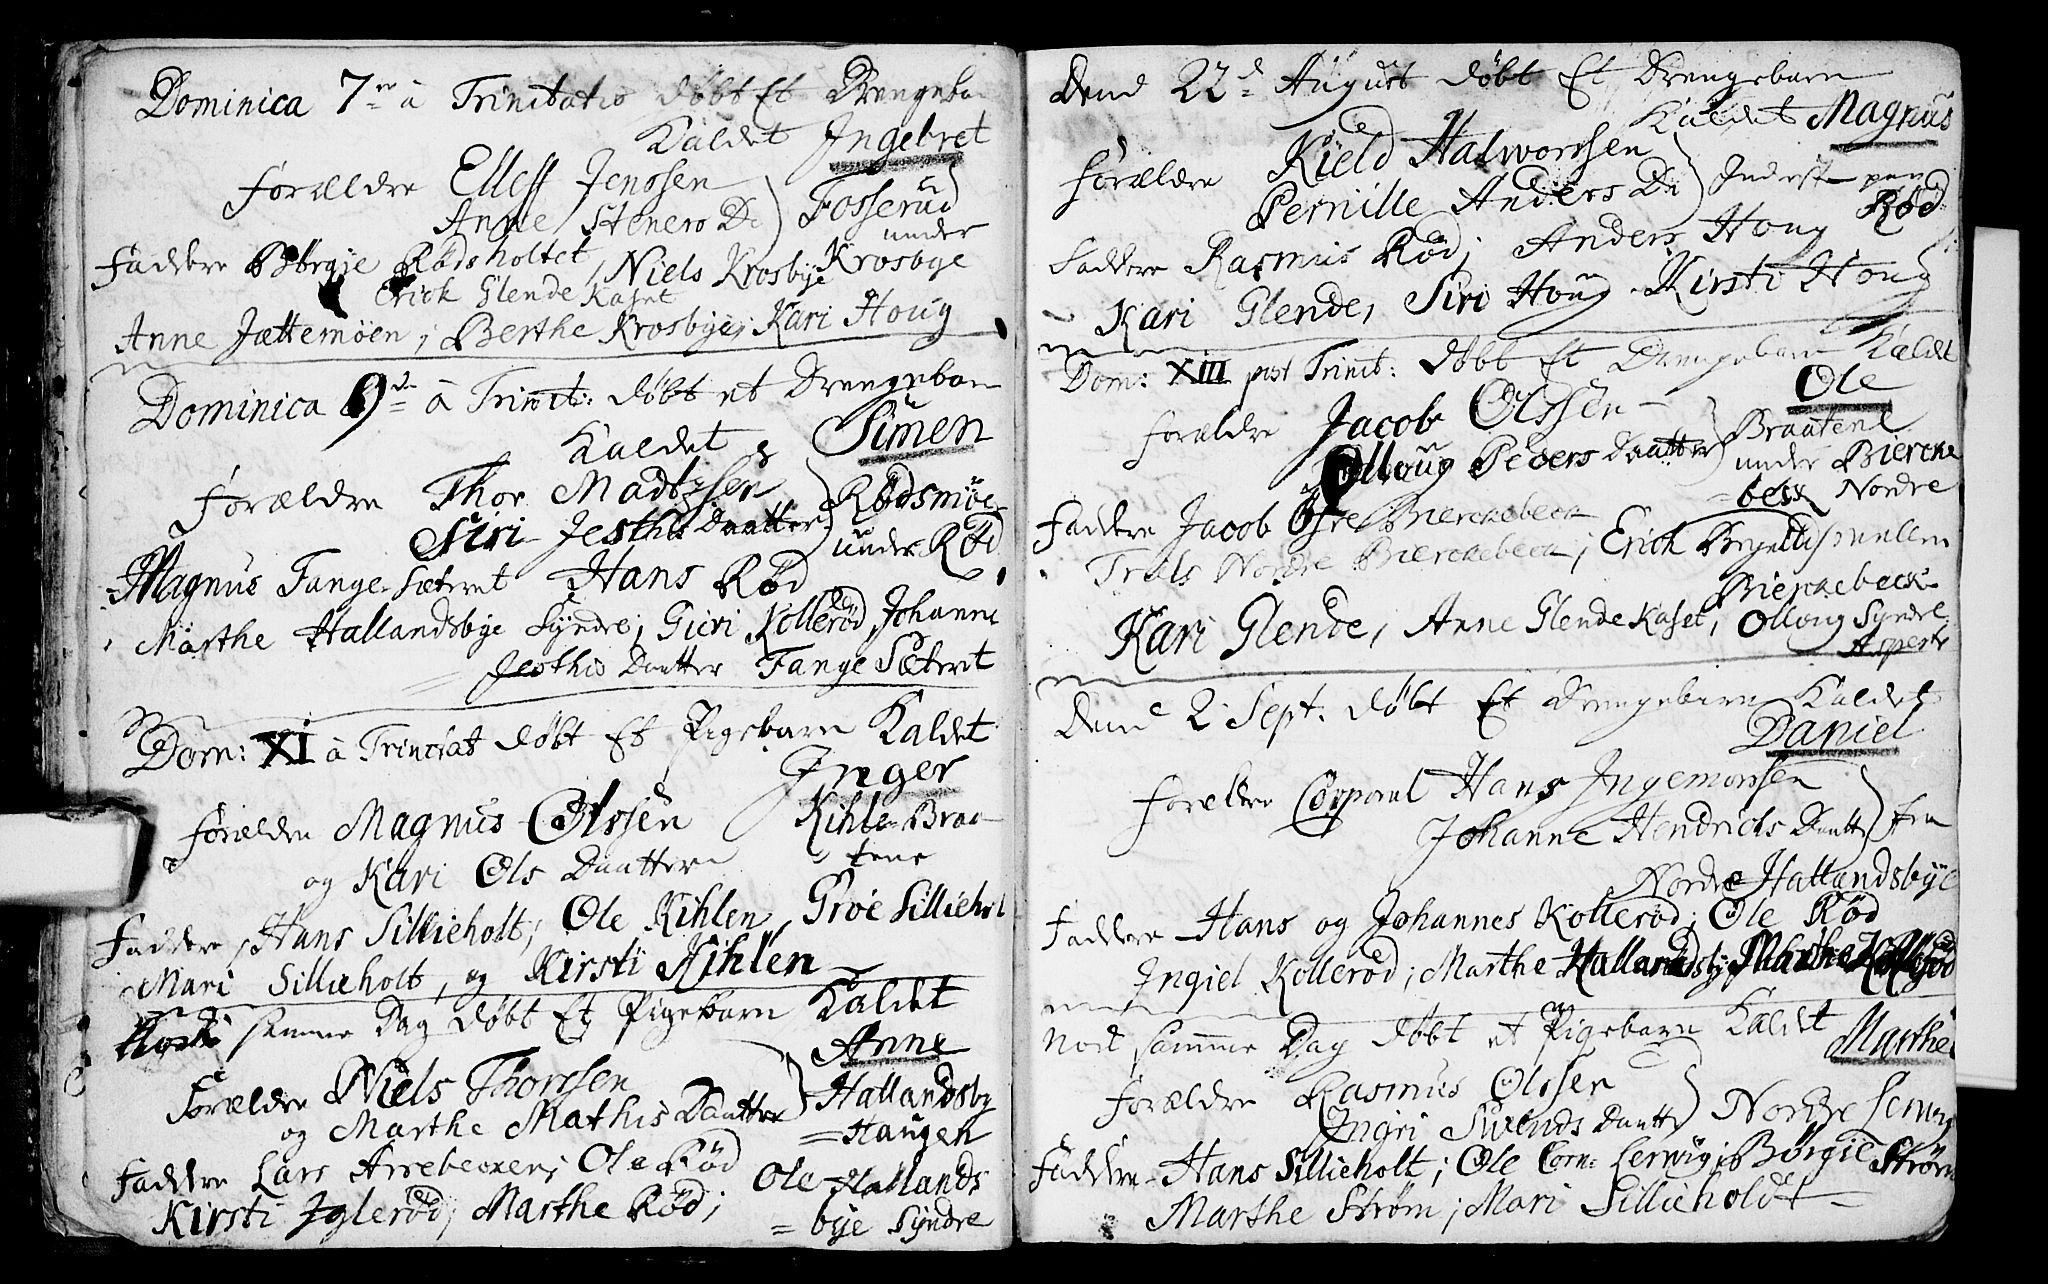 Dominica 7de à Trinitatis døbt Et Drengebarn
Kaldet Ingebret
Forældre Elleff Jenssen
Anne Steners D: Fosserud
under
Faddere Børgje Rødsholtet, Niels Krosbye Krosbye
Erick Glende Kaset
Anne Jættemøen; Berthe Krosbye; Kari Houg
Dominica 9de à Trinit: døbt et Drengebarn
Kaldet Simen
Forældre Thor Madtzsen Rødsmøe
Siri Jesthis Daatter under Rød
Magnus Tange Sæteret Hans Rød
Marthe Hallandsbye Syndre; Guri Kollerød Johanne
Josthis Daatter Tange Sæteret
Dom: XI à Trinitat døbt Et Pigebarn Kaldet
Inger
Forældre Magnus Olssen Kihle-Braa-
og Kari Ols Daatter tene
Faddere Hans Sillieholt; Ole Kihlen, Groe Sillieholt
Mari Sillieholt, og Kirsti Kihlen
samme Dag døbt Et Pigebarn Kaldet
Anne
Forældre Niels Thorssen Hallandsby
og Marthe Mathis Daatter =Haugen
Faddere Lars Arrebecken; Ole Rød Ole Hallands
Kirsti Iglerød; Marthe Rød; =bye Syndre
Dend 22d August døbt Et Drengebarn
Kaldet Magnus
Forældre Kield Halworssen
Pernille Anders D: Inderst paa
Rød
Faddere Rasmus Rød; Anders Houg
Kari Glende, Siri Houg Kirsti Houg
Dom: XIII post Trinit: døbt Et Drengebarn Kaldet
Ole
Forældre Jacob Olssen Braatene
Olloug Peders Daatter under Biercke
=beck Nordre
Faddere Jacob Øfre Bierckebeck
Truls Nordre Bierckebeck; Erick
Bierckebeck
Kari Glende, Anne Glende Kaset, Olloug Syndre
Asperte
Dend 2 Sept. døbt Et Drengebarn Kaldet
Daniel
Forældre Corporal Hans Ingemorssen
Johanne Hendrichs Daatter fra
Nordre Hallandsbye
Faddere Hans og Johannes Kollerød; Ole Rød
Ingiel Kollerød; Marthe Hallandsbye Marthe Kollerød
Nock samme Dag døbt et Pigebarn Kaldet Marthe
Forældre Rasmus Olssen
Ingri Swends Daatter Nordre
Faddere Hans Sillieholt; Ole Corn: Børgie Strøm
Marthe Strøm; Mari Sillieholdt